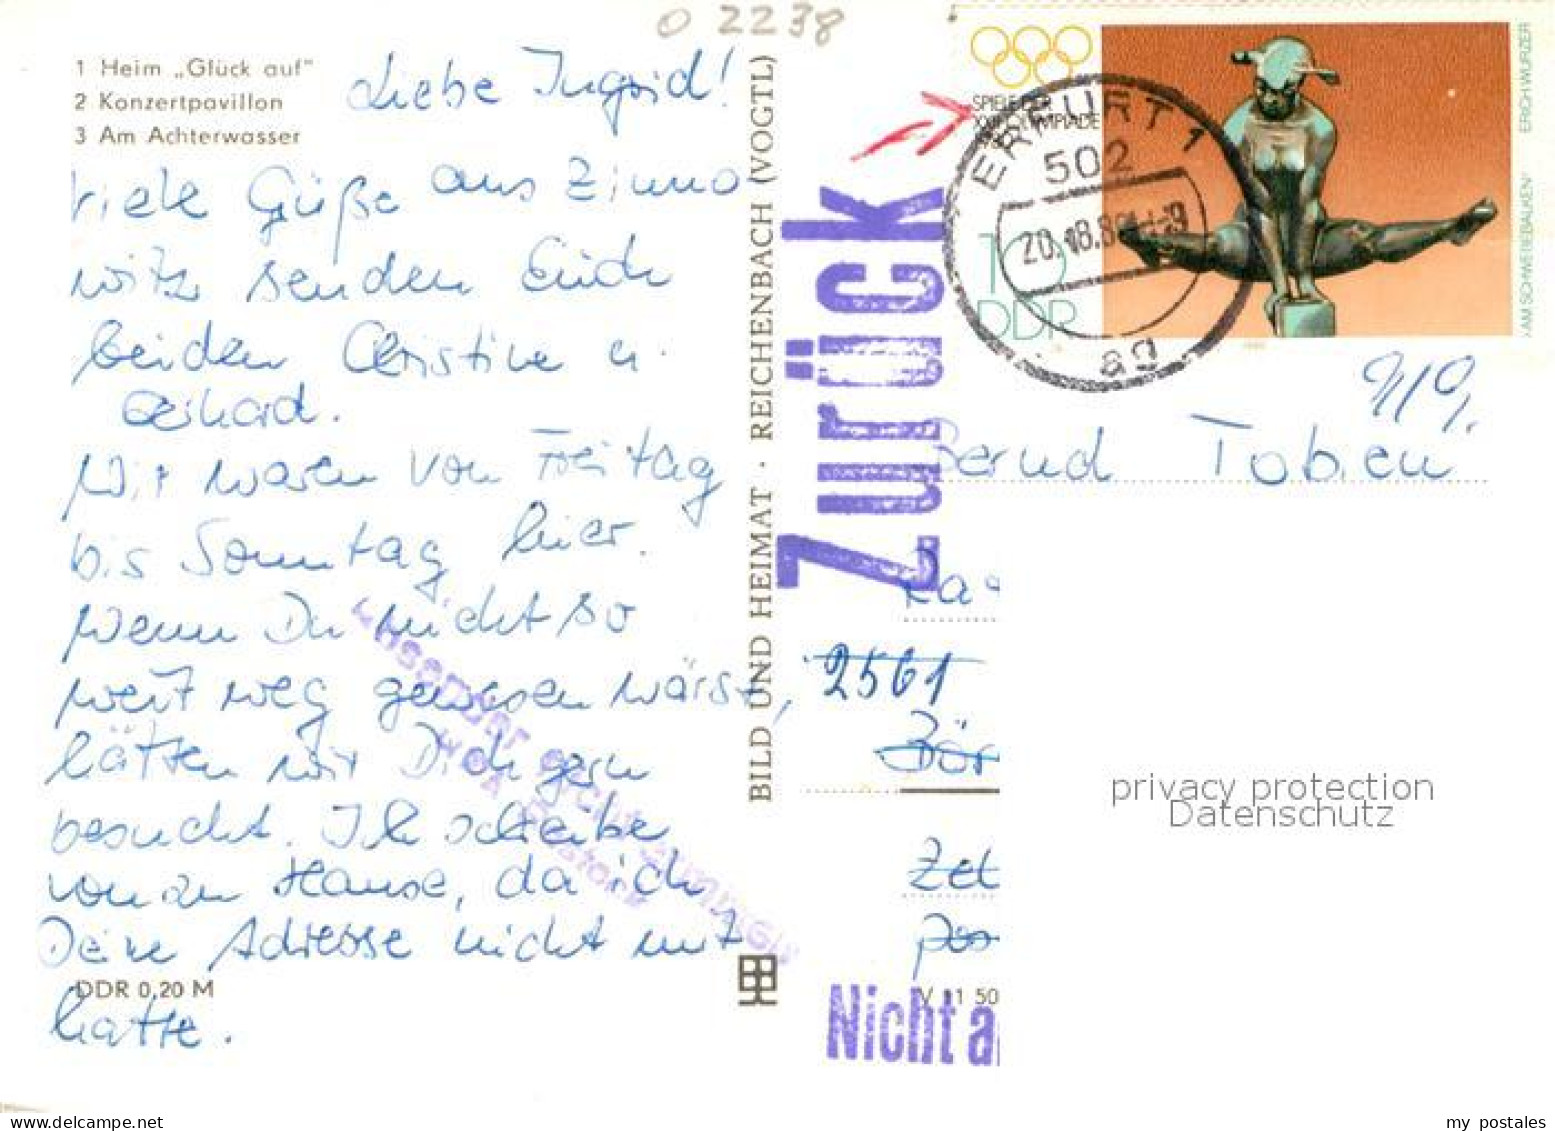 O 2238
1 Heim „Glück auf"
2 Konzertpavillon
3 Am Achterwasser
Liebe Ingrid!
Viele Grüße aus Zinno
witz senden Euch
beiden Christine u.
Gerhard.
Wir waren von Freitag
bis Sonntag hier.
Wenn Du nicht so
weit weg gewesen wärst,
hätten wir Dich gern
besucht. Ich schreibe
von zu Hause, da ich
Deine Adresse nicht mit
hatte.
DDR 0,20 M
BILD UND HEIMAT · REICHENBACH (VOGTL)
Zurück
Absender nicht
SPIELE DER
XXIV. OLYMPIADE
10
DDR
ERICH WURZER
»AM SCHWEBEBALKEN«
ERFURT 1
502
ag
Bernd Tobien
2561
Zet
V 11 50
Nicht a
privacy protection
Datenschutz
my postales